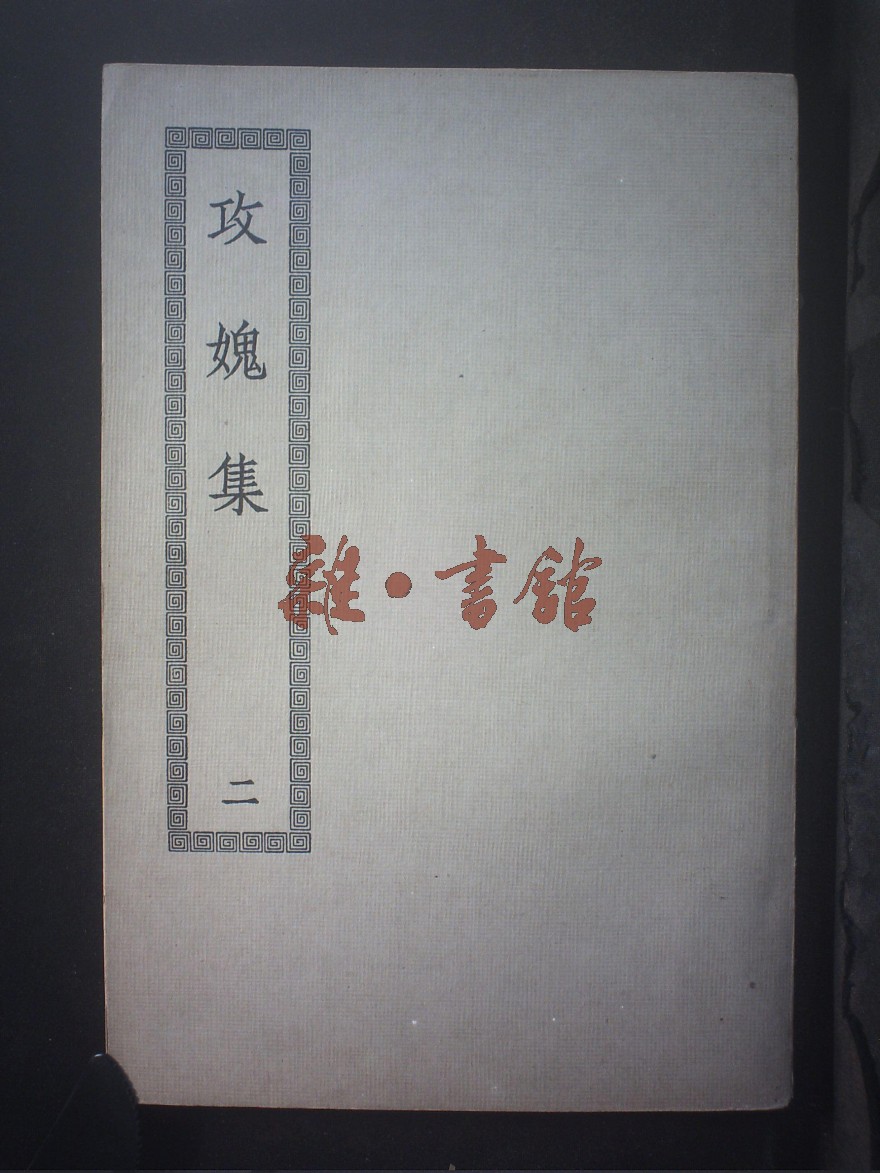 攻媿集
二
雜·書館